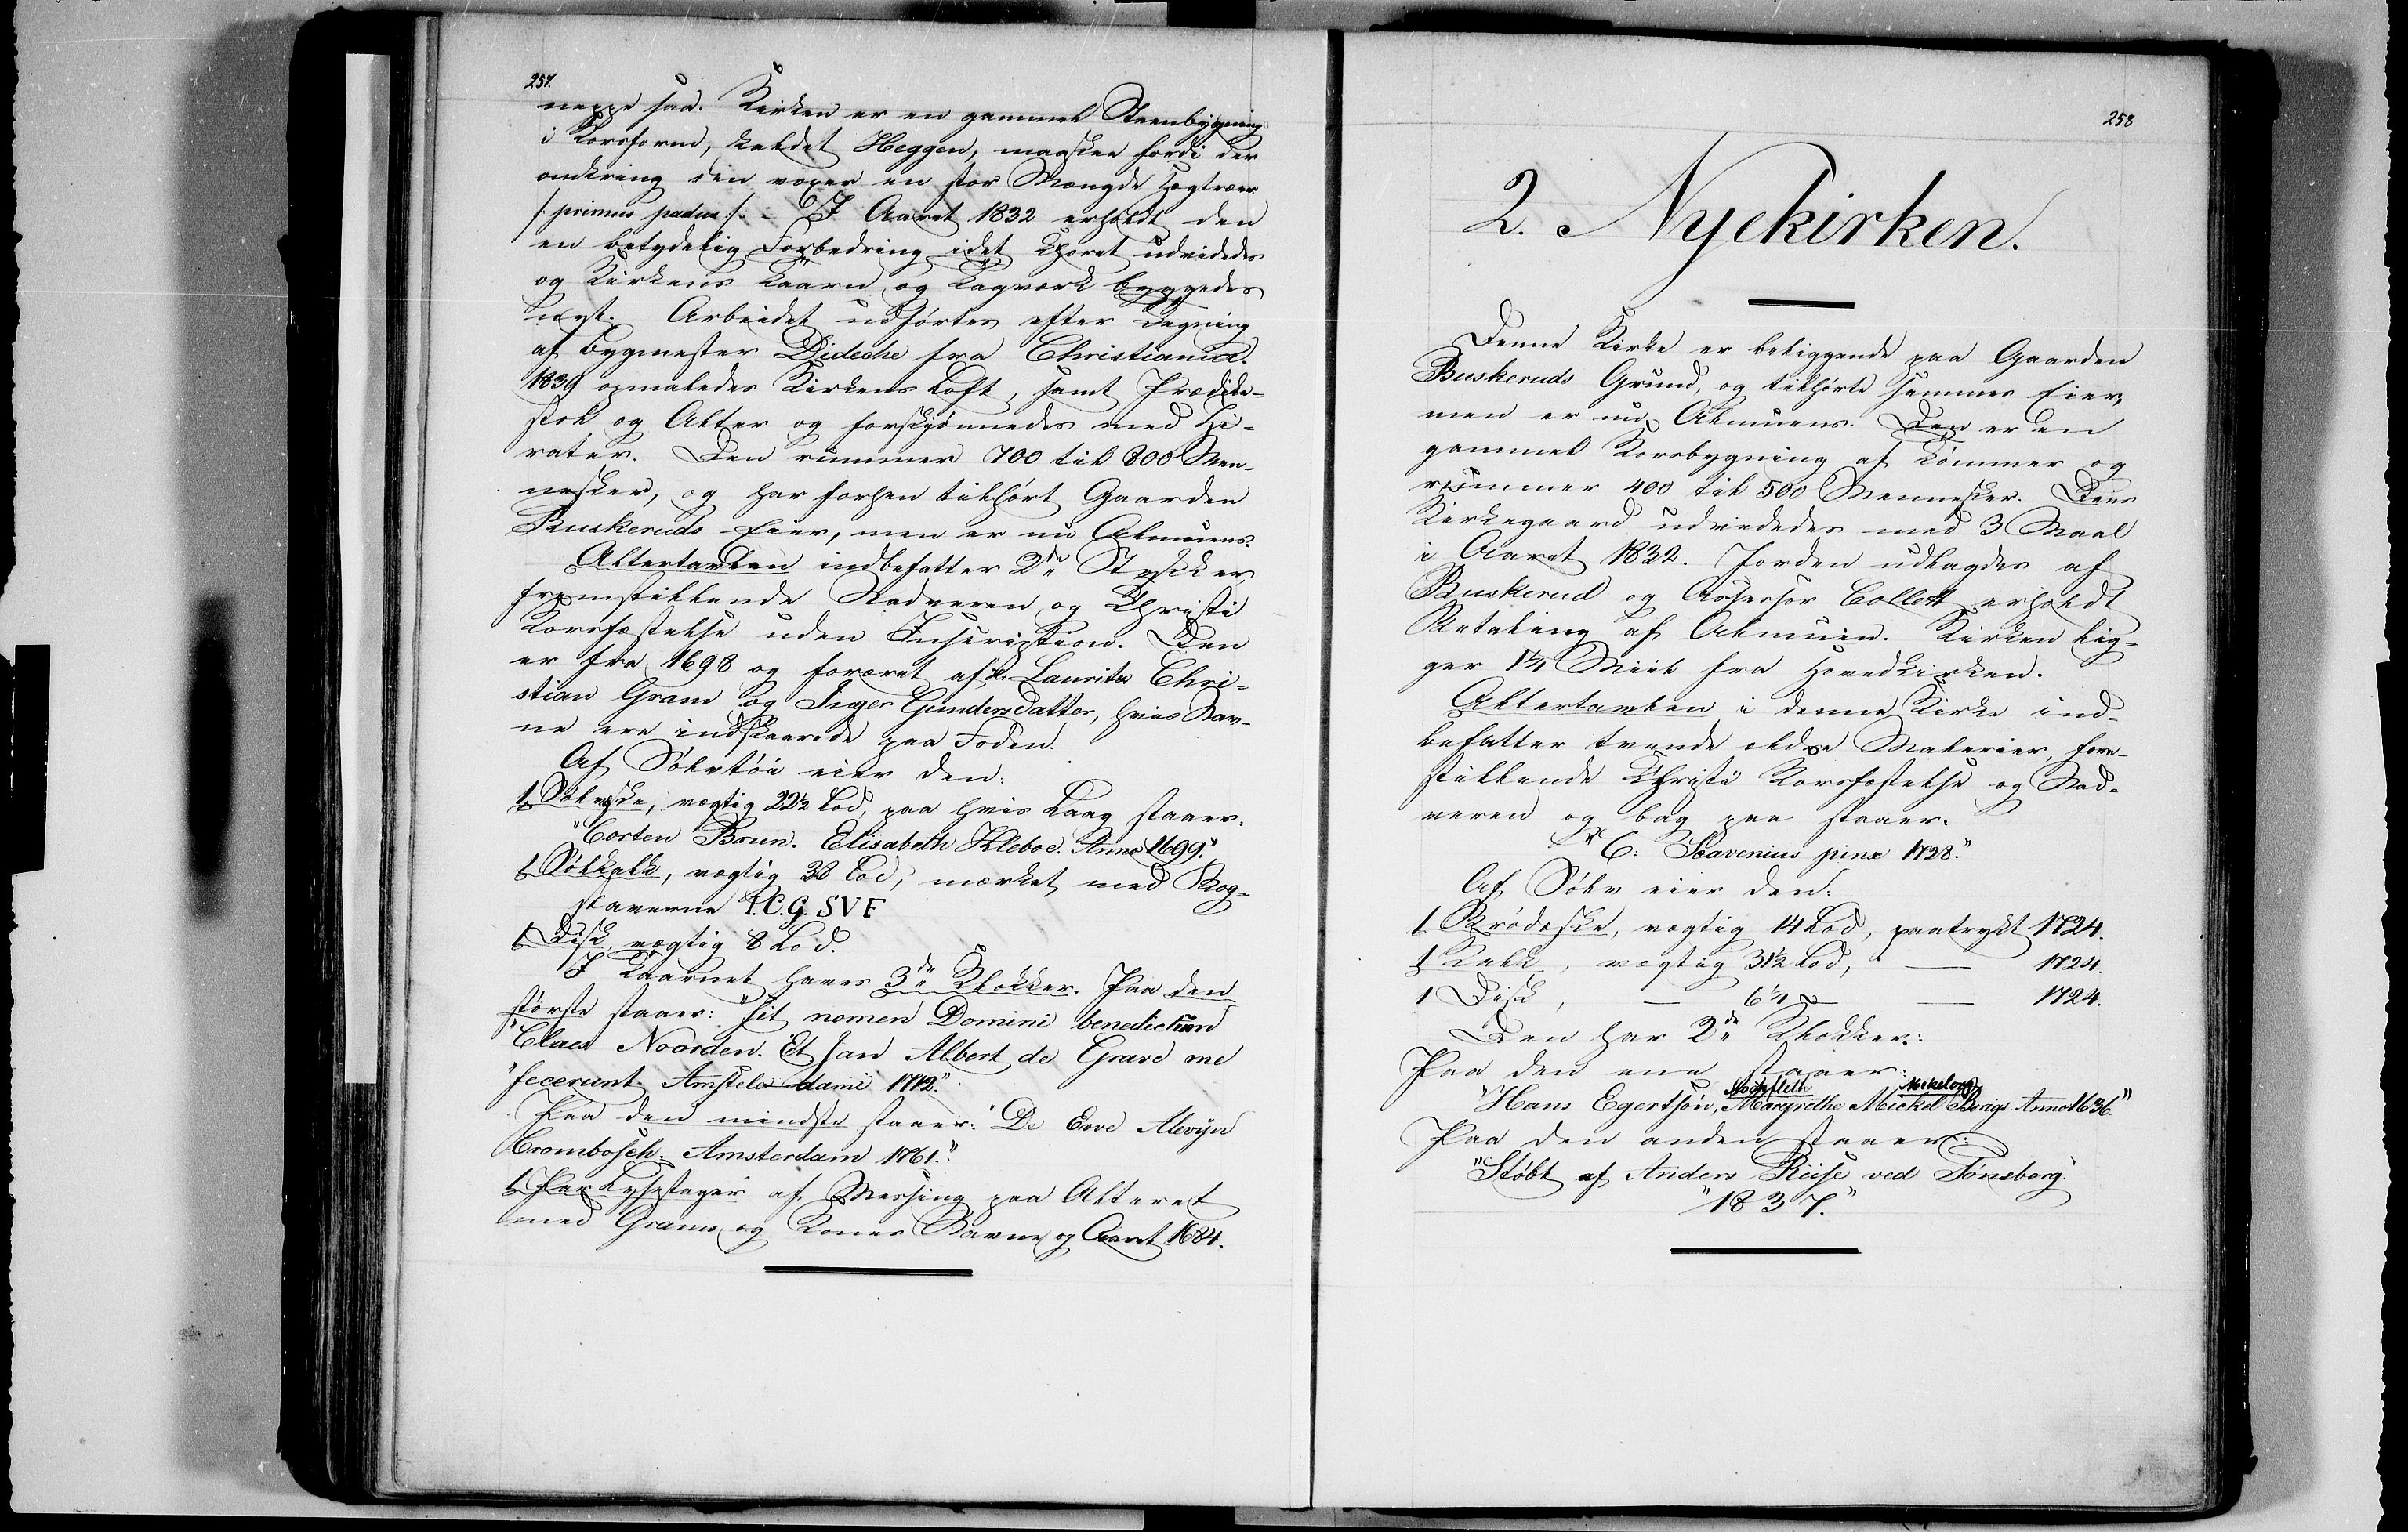 257.
neppe saa. Kirken er en gammel Steenbygning
i Korsform, kaldet Heggen, maaskee fordi der
omkring den voxer en stor Mængde Hægtræer
/: primus padus :/. - I Aaret 1832 erholdt den
en betydelig Forbedring idet Choret udvidedes
og Kirkens Taarn og Tagværk byggedes
nyt. Arbeidet udførtes efter Tegning
af Bygmester Dideche fra Christiania.
1839 opmaledes Kirkens Loft, samt Prædike-
stol og Alter og forskjønnedes med Zi-
rater. Den rummer 700 til 800 Men-
nesker, og har forhen tilhørt Gaarden
Buskeruds Eier, men er nu Almuens.
Altertavlen indbefatter 2de Stykker,
fremstillende Nadveren og Christi
Korsfæstelse uden Inscription. Den
er fra 1698 og foræret af Hr. Lauritz Chri-
stian Gram og Inger Gundersdatter, hvis Nav-
ne ere indskaarede paa Foden.
Af Sølvtøi eier den:
1 Sølvæske, vægtig 22½ Lod, paa hvis Laag staaer:
"Corten Brun. Elisabeth Kleboe. Anno 1699."
1 Sølkalk, vægtig 38 Lod, mærket med Bog-
staverne I.C.G. SVF
1 Disk, vægtig 8 Lod.
I Taarnet haves 3de Klokker. Paa den
største staaer: "Sit nomen Domini benedictum
"Claes Noorden. Et Jan Albert de Grave me
"fecerunt. Amstelodami 1712."
Paa den mindste staaer: "De Erve Alevijn
Crombosch. Amsterdam 1761."
1 Par Lysestager af Messing paa Alteret
med Grams og Kones Navne og Aaret 1684.
258
2. Nyekirken.
Denne Kirke er beliggende paa Gaarden
Buskeruds Grund, og tilhørte sammes Eier,
men er nu Almuens. Den er en
gammel Korsbygning af Tømmer og
rummer 400 til 500 Mennesker. Dens
Kirkegaard udvidedes med 3 Maal
i Aaret 1832. Jorden udlagdes af
Buskerud og Assessor Collett erholdt
Betaling af Almuen. Kirken lig-
ger 1¼ Miil fra Hovedkirken.
Altertavlen i denne Kirke ind-
befatter tvende ældre Malerier, fore-
stillende Christi Korsfæstelse og Nad-
veren og bag paa staaer:
"C: Scavenius pinx 1728."
Af Sølv eier den:
1 Brødæske, vægtig 14 Lod, paatrykt 1724.
1 Kalk, vægtig 31½ Lod, — 1724.
1 Disk, — 6¼ — 1724.
Den har 2de Klokker:
Paa den ene staaer:
Stockfleth
"Hans Egertsøn, Margrethe Mickel Borigs Anno 1636."
Paa den anden staaer:
"Støbt af Anders Riise ved Tønsberg.
"1837."